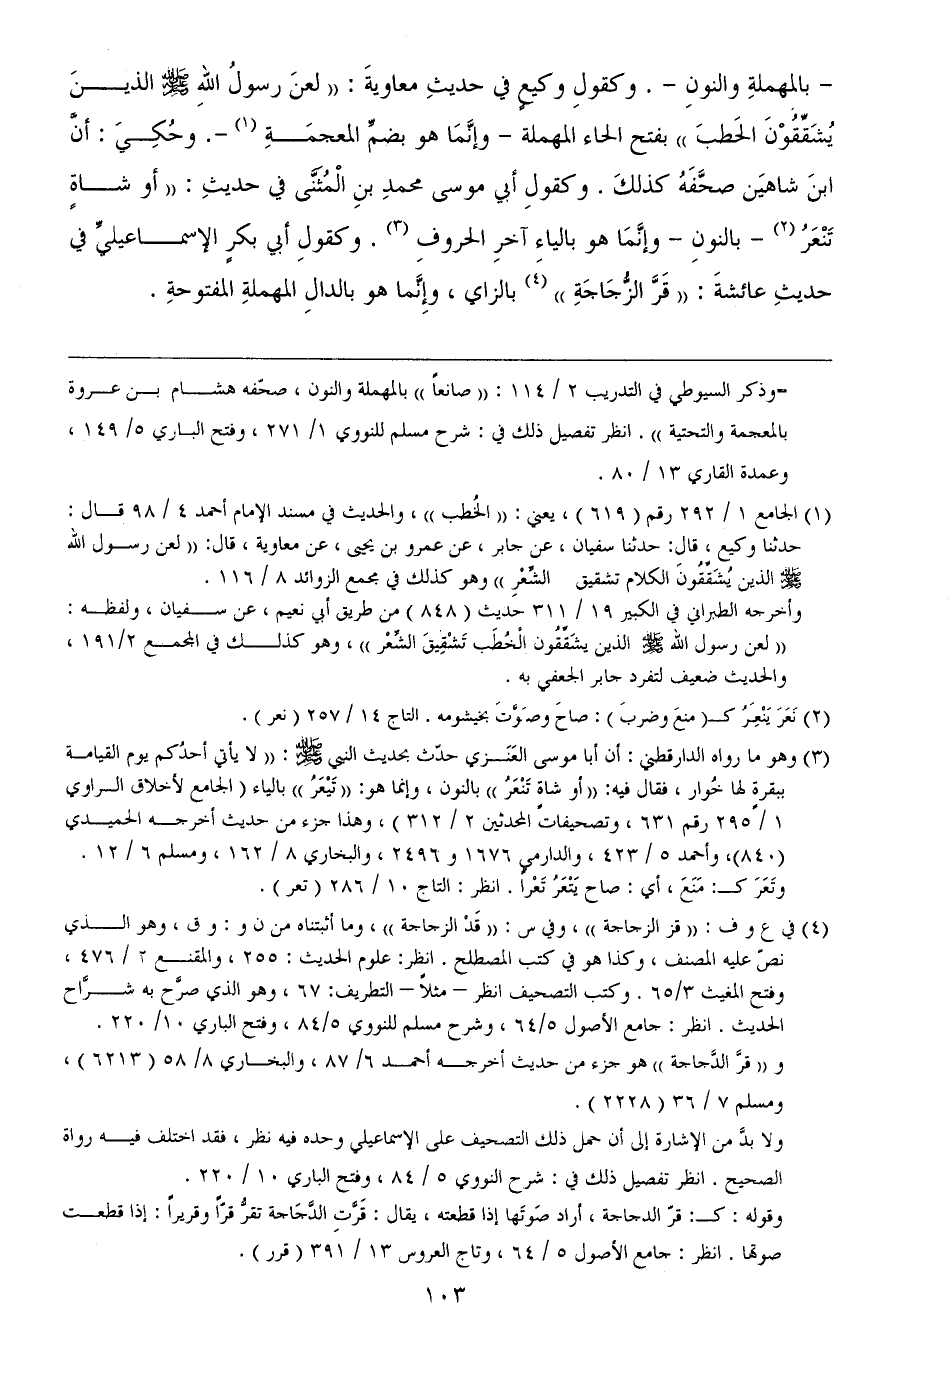 – بالمهملةِ والنونِ – . وكقولِ وكيعٍ في حديثِ معاويةَ : (( لعنَ رسولُ اللهِ ﷺ الذيـــنَ
يُشَقِّقُوْنَ الحَطبَ )) بفتح الحاء المهملة – وإنَّمَا هو بضمِّ المعجمَـــةِ (١) –. وحُكِـيَ : أنَّ
ابنَ شاهيَن صحَّفَهُ كذلكَ . وكقول أبي موسى محمدِ بنِ الْمُثَنَّى في حديثِ : (( أو شـــاةٍ
تَنْعَرُ (٢) – بالنونِ – وإنَّمَا هو بالياءِ آخرِ الحروفِ (٣) . وكقول أبي بكرٍ الإسمـــاعيليِّ في
حديثِ عائشةَ : (( قَرَّ الزُّجَاجَةِ )) (٤) بالزاي ، وإنَّما هو بالدالِ المهملةِ المفتوحةِ .
=وذكر السيوطي في التدريب ٢ / ١١٤ : (( صانعاً )) بالمهملة والنون ، صحّفه هشـــام بـــن عـــروة
بالمعجمة والتحتية )) . انظر تفصيل ذلك في : شرح مسلم للنووي ١/ ٢٧١ ، وفتح البـاري ٥/ ١٤٩ ،
وعمدة القاري ١٣ / ٨٠ .
(١) الجامع ١ / ٢٩٢ رقم ( ٦١٩ ) ، يعني : (( الخُطب )) ، والحديث في مسند الإمام أحمد ٤ / ٩٨ قـــال :
حدثنا وكيع ، قال: حدثنا سفيان ، عن جابر ، عن عمرو بن يحيى ، عن معاوية ، قال: (( لعن رســـول الله
ﷺ الذين يُشَقِّقُونَ الكلام تشقيق الشِّعْرِ )) وهو كذلك في مجمع الزوائد ٨ / ١١٦ .
وأخرجه الطبراني في الكبير ١٩ / ٣١١ حديث ( ٨٤٨ ) من طريق أبي نعيم ، عن ســـفيان ، ولفظـــه :
(( لعن رسول الله ﷺ الذين يشقِّقُون الْخُطَب تَشْقِيقَ الشِّعْر )) ، وهو كذلـــك في المجمـــع ١٩١/٢ ،
والحديث ضعيف لتفرد جابر الجعفي به .
(٢) نَعَرَ يَنْعِرُ كـ( منعَ وضربَ ) : صاحَ وصَوَّتَ بخيشومه . التاج ١٤ / ٢٥٧ ( نعر ) .
(٣) وهو ما رواه الدارقطني : أن أبا موسى العَنَـزي حدّث بحديث النبي ﷺ : (( لا يأتي أحدُكم يوم القيامـة
ببقرةٍ لها خُوار ، فقال فيه: (( أو شاةٍ تَنْعَرُ )) بالنون ، وإنما هو: (( تَيْعَرُ )) بالياء ( الجامع لأخلاق الـراوي
١ / ٢٩٥ رقم ٦٣١ ، وتصحيفات المحدثين ٢ / ٣١٢ ) ، وهذا جزء من حديث أخرجـــه الحميـدي
(٨٤٠)، وأحمد ٥ / ٤٢٣ ، والدارمي ١٦٧٦ و ٢٤٩٦ ، والبخاري ٨ / ١٦٢ ، ومسلم ٦ / ١٢ .
وتَعَرَ كـ: مَنَعَ ، أي : صاح يَتْعَرُ تَعْراً . انظر : التاج ١٠ / ٢٨٦ ( تعر ) .
(٤) في ع و ف : (( قز الزجاجة )) ، وفي س : (( قَدْ الزجاجة )) ، وما أثبتناه من ن و : و ق ، وهو الـــذي
نصّ عليه المصنف ، وكذا هو في كتب المصطلح . انظر: علوم الحديث : ٢٥٥ ، والمقنـــع ٢ / ٤٧٦ ،
وفتح المغيث ٦٥/٣ . وكتب التصحيف انظر – مثلاً – التطريف: ٦٧ ، وهو الذي صرَّح به شـــرَّاح
الحديث . انظر : جامع الأصول ٦٤/٥ ، وشرح مسلم للنووي ٨٤/٥ ، وفتح الباري ١٠/ ٢٢٠ .
و (( قرَّ الدَّجاجة )) هو جزء من حديث أخرجـــه أحمـــد ٦/ ٨٧ ، والبخـــاري ٨/ ٥٨ ( ٦٢١٣ ) ،
ومسلم ٧ / ٣٦ ( ٢٢٢٨ ) .
ولا بدَّ من الإشارة إلى أن حمل ذلك التصحيف على الإسماعيلي وحده فيه نظر ، فقد اختلف فيـــه رواة
الصحيح . انظر تفصيل ذلك في : شرح النووي ٥ / ٨٤ ، وفتح الباري ١٠ / ٢٢٠ .
وقوله : كـ: قرّ الدجاجة ، أراد صَوتَها إذا قطعته ، يقال : قَرَّتِ الدَّجَاجة تقرُّ قرّاً وقريراً : إذا قطعـــت
صوتها . انظر : جامع الأصول ٥ / ٦٤ ، وتاج العروس ١٣ / ٣٩١ ( قرر ) .
١٠٣